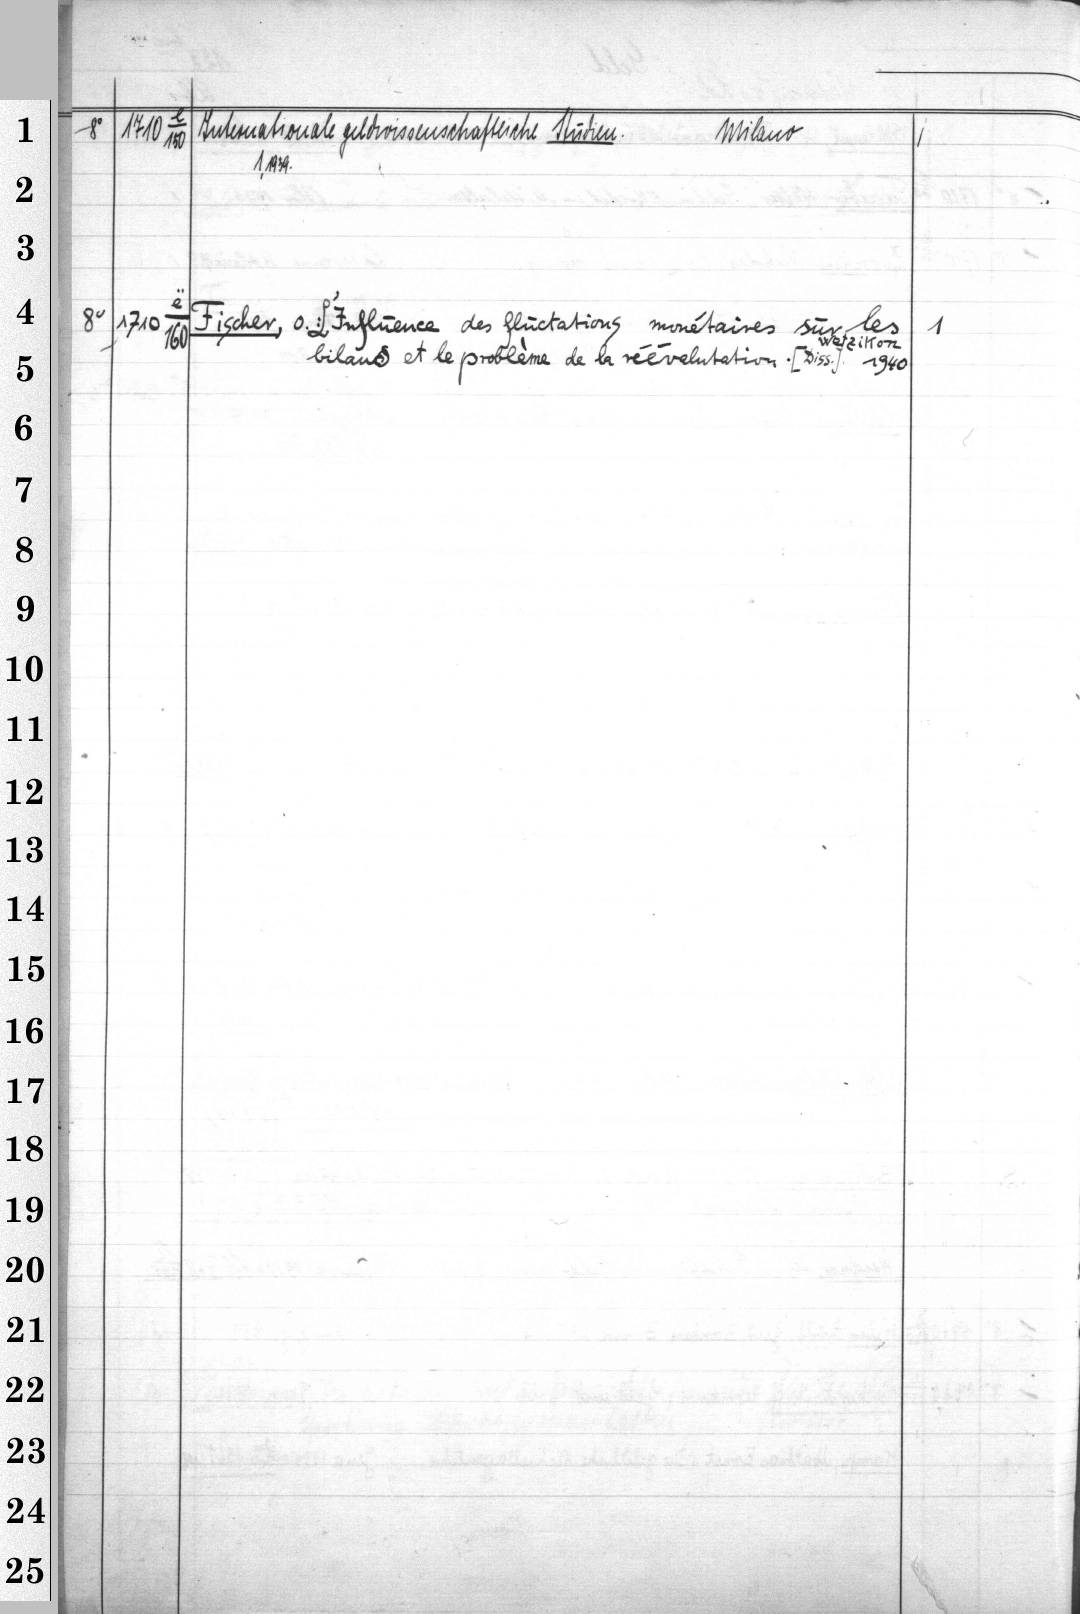 1 8° 1710 e/150 Internationale geldwissenschaftliche Studien. Milano 1
1, 1939.
2
3
4 8° 1710 ë/160 Fischer, O.: L'Influence des fluctations monétaires sur les 1
Wetzikon
5 bilans et le problème de la réévelutation. [Diss.] 1940
6
7
8
9
10
11
12
13
14
15
16
17
18
19
20
21
22
23
24
25